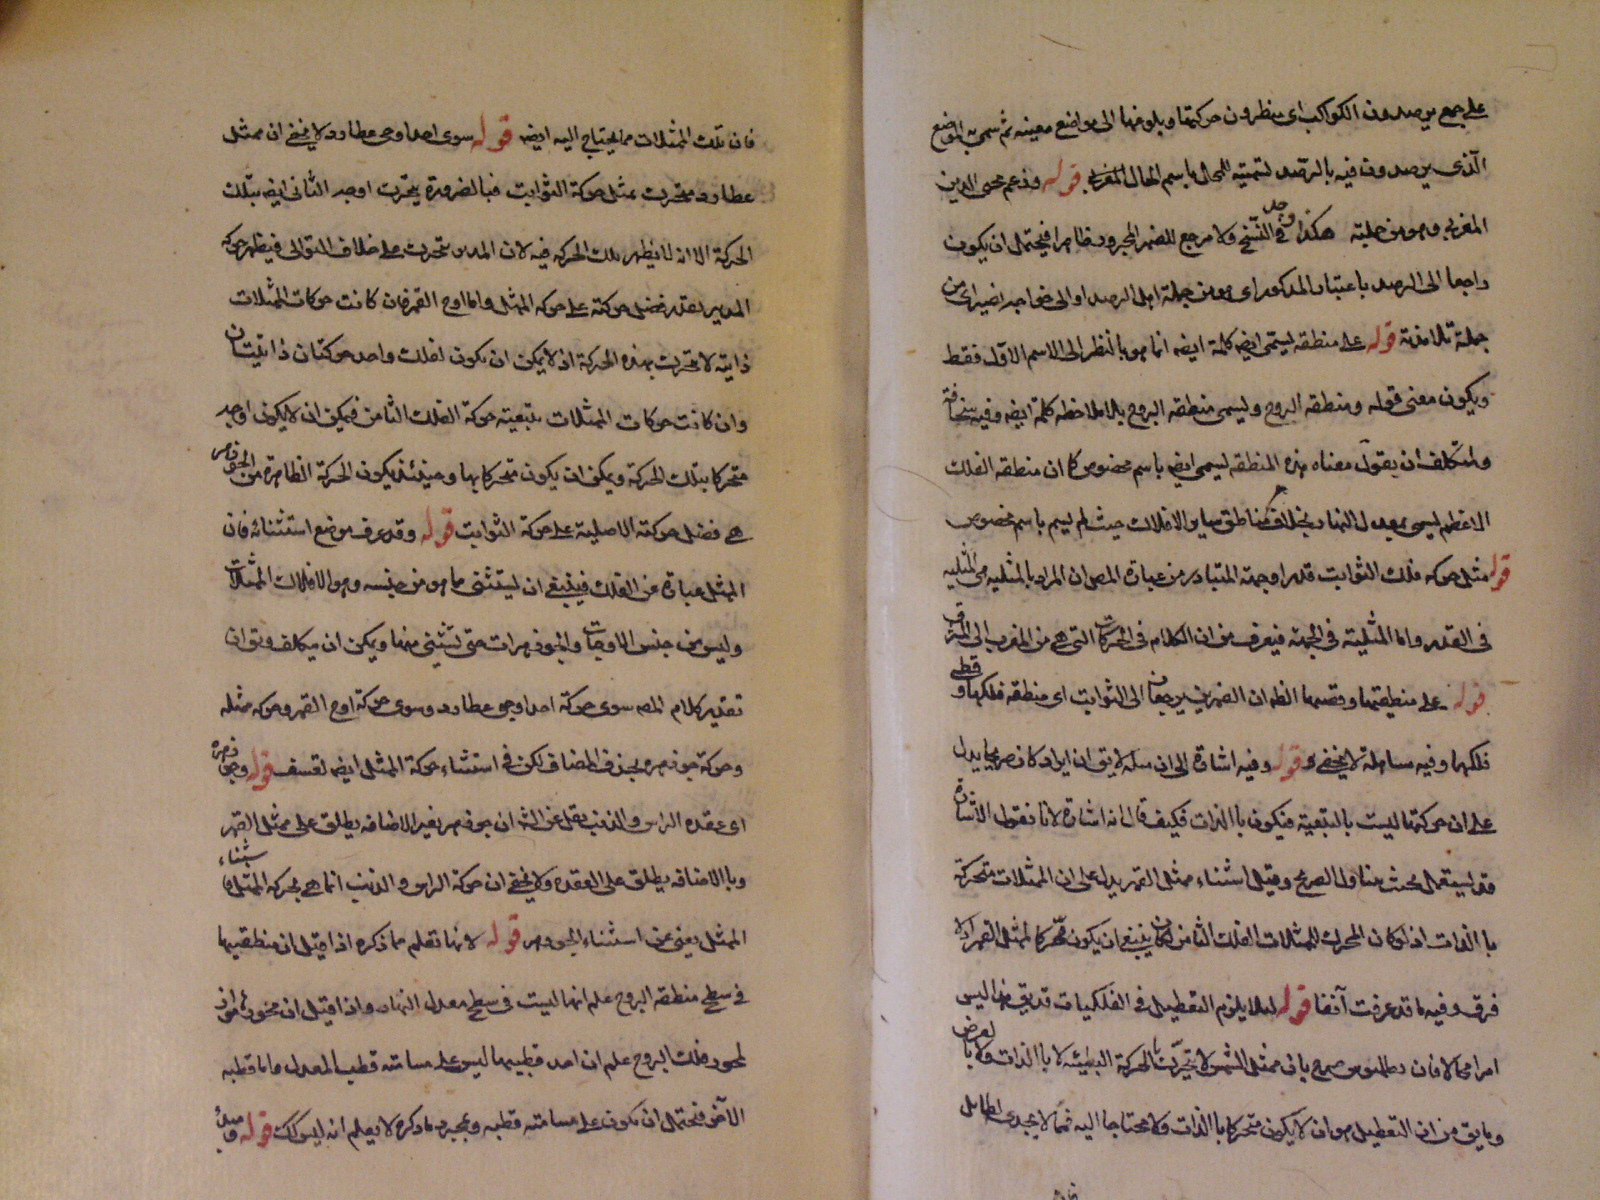 على جمع يرصدون الكواكب اى ينظرون حركتها وبلوغها الى مواضع معينه ثم سمى به الموضع
الذى يرصدون فيه بالرصد لتسميته المحل باسم الحال المغربى قوله وزعم محى الدين
المغربى وهو من حليته هكذا وجد فى النسخ ولا مرجع للضمير المجرور ظاهرا فيحتمل ان يكون
راجعا الى الرصد باعتبار المذكور اى هو من جملة اهل الرصد او الى خواجه نصير اى من
جملة تلامذته قوله على منطقه يسمى ايضه كلمة ايضه انما هو بالنظر الى الاسم الاول فقط
ويكون معنى قوله ومنطقه البروج وليسمى منطقه البروج بلا ملاحظه كلمة ايضه وفيه سخافة
ولمتكلف ان يقول معناه هذه المنطقه يسمى ايضه باسم مخصوص كما ان منطقه الفلك
الاعظم يسمى بمعدل النهار بخلاف مناطق ساير الافلاك حيث لم يسم باسم مخصوص
قوله مثل حركه فلك الثوابت قدرا وجهة المتبادر من عبارة المص ان المراد بالمثليه هى المثليه
فى القدر واما المثلية فى الجهة فيعرف من ان الكلام فى الحركات التى هى من المغرب الى المشرق
قوله على منطقتها وقطبيها الظ ان الضميرين يرجعان الى الثوابت اى منطقه فلكها وقطبى
فلكها وفيه مساهلة لا يخفى قوله وفيه اشارة الى ان لا يق ان ايراد كاف مما يدل
على ان حركتها ليست بالتبعية فيكون بالذات فكيف قال انه اشارة لانا نقول الاشارة
قد يستعمل بحيث يتناول الصريح وقيل استثناء ممثل القمر يدل على ان الممثلات متحركة
بالذات اذ لو كان المحرك للممثلات الفلك الثامن لكان ينبغى ان يكون محركا لممثل القمر اذ لا
فرق وفيه ما قد عرفت آنفا قوله لئلا يلزم التعطيل فى الفلكيات قد يق هذا ليس
امرا محالا فان بطلميوس صرح بان ممثل الشمس لا يتحرك بالحركة البطيئه لا بالذات ولا بالعرض
وما يق من ان التعطيل هو ان لا يكون متحركا بالذات ولا محتاجا اليه فمما لا يجدى بطائل
فان تلك الممثلات مما يحتاج اليه ايضه قوله سوى احد اوجى عطارد لا يخفى ان ممثل
عطارد متحرك بمثل حركة الثوابت فبالضرورة يتحرك اوجه الثانى ايضه بتلك
الحركة الا انه لا يظهر تلك الحركه فيه لان المدير يتحرك على خلاف التوالى فيظهر حركه
المدير بقدر فضل حركته على حركه الممثل واما اوج القمر فان كانت حركات الممثلات
ذاتيه لا يتحرك بهذه الحركة اذ لا يمكن ان يكون لفلك واحد حركتان ذاتيتان
وان كانت حركات الممثلات بتبعية حركة الفلك الثامن فيمكن ان لا يكون اوجه
متحركا بتلك الحركة ويمكن ان يكون متحركا بها وحينئذ يكون الحركة الظاهرة من الجوزهر
هى فضل حركته الاصلية على حركة الثوابت قوله وقد عرف موضع استثنائه فان
الممثل عبارة عن الفلك فينبغى ان يستثنى ما هو من جنسه وهو الافلاك الممثلات
وليس من جنس الاوجات والجوزهرات حتى يستثنى منها ويمكن ان يتكلف ويق ان
تقدير كلام المص سوى حركة احد اوجى عطارد وسوى حركة اوج القمر وحركه ممثله
وحركة جوزهره بحذف المضاف لكن فى استثناء حركة الممثل ايضا تعسف قوله وجوزهره
اى عقدة الراس والذنب نقل عن الش ان جوزهر بغير الاضافه يطلق على ممثل القمر
وبالاضافه يطلق على العقدة ولا يخفى ان حركة الراس والذنب انما هى بحركه الممثل فاستثناء
الممثل يغنى عن استثناء الجوزهر قوله لانها تعلم مما ذكره اذا قيل ان منطقتيهما
فى سطح منطقه البروج علم انها ليست فى سطح معدل النهار واذا قيل ان محوره مواز
لمحور فلك البروج علم ان احد قطبيهما ليس على مسامته قطب المعدل واما قطبه
الآخر فيحتمل ان يكون على مسامته قطبه وبمجرد ما ذكره لا يعلم انه ليس كك قوله